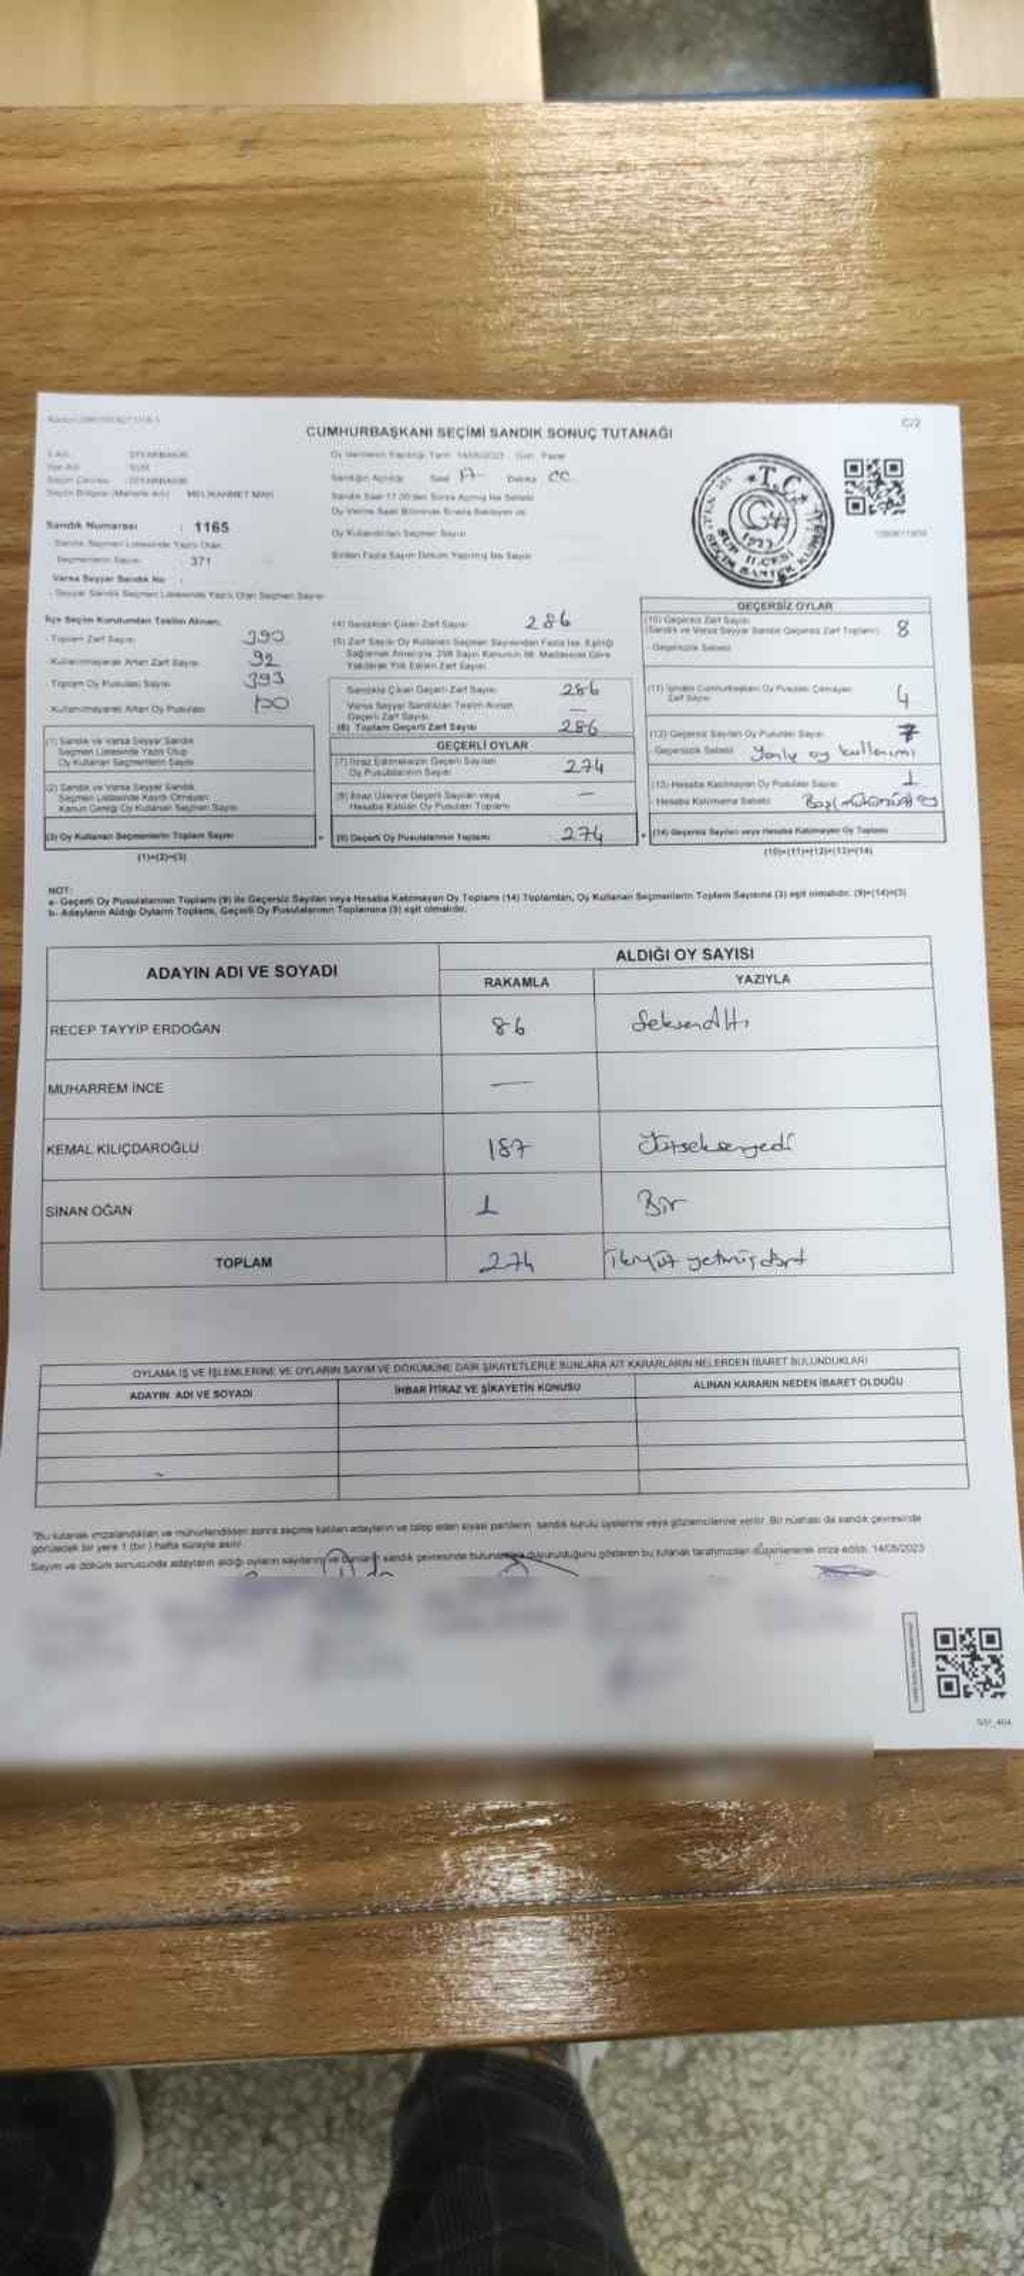 C/2
CUMHURBAŞKANI SEÇİMİ SANDIK SONUÇ TUTANAĞI
Oy Vermenin Yapıldığı Tarih 14/05/2023 Gün Pazar
Sandığın Açıldığı Saat 17 Dakika 00
Sandık Numarası : 1165
Sandık Seçmen Listesinde Yazılı Olan
Seçmenlerin Sayısı : 371
Varsa Seyyar Sandık No :
Seyyar Sandık Seçmen Listesinde Yazılı Olan Seçmen Sayısı
Oy Kullandırılan Seçmen Sayısı
T.C.
İlçe Seçim Kurulundan Teslim Alınan;
- Toplam Zarf Sayısı
- Kullanılmayarak Artan Zarf Sayısı 92
- Toplam Oy Pusulası Sayısı 393
- Kullanılmayarak Artan Oy Pusulası
(1) Sandık ve Varsa Seyyar Sandık
Seçmen Listesinde Yazılı Olup
Oy Kullanan Seçmenlerin Sayısı
(2) Sandık ve Varsa Seyyar Sandık
Seçmen Listesinde Kayıtlı Olmayan
Kanun Gereği Oy Kullanan Seçmen Sayısı
(3) Oy Kullanan Seçmenlerin Toplam Sayısı
(1)+(2)=(3)
(4) Sandıktan Çıkan Zarf Sayısı 286
Sandıkta Çıkan Geçerli Zarf Sayısı 286
Varsa Seyyar Sandıktan Teslim Alınan
Geçerli Zarf Sayısı —
(6) Toplam Geçerli Zarf Sayısı 286
GEÇERLİ OYLAR
(7) İtiraz Edilmeksizin Geçerli Sayılan
Oy Pusulalarının Sayısı 274
(8) İtiraz Üzerine Geçerli Sayılan veya
Hesaba Katılan Oy Pusulası Toplamı —
(9) Geçerli Oy Pusulalarının Toplamı 274
GEÇERSİZ OYLAR
(10) Geçersiz Zarf Sayısı
(Sandık ve Varsa Seyyar Sandık Geçersiz Zarf Toplamı) 8
Geçersizlik Sebebi
4
7
Geçersizlik Sebebi
1
Hesaba Katılmama Sebebi
(14) Geçersiz Sayılan veya Hesaba Katılmayan Oy Toplamı
(10)+(11)+(12)+(13)=(14)
NOT:
a- Geçerli Oy Pusulalarının Toplamı (9) ile Geçersiz Sayılan veya Hesaba Katılmayan Oy Toplamı (14) Toplamları, Oy Kullanan Seçmenlerin Toplam Sayısına (3) eşit olmalıdır. (9)+(14)=(3)
b- Adayların Aldığı Oyların Toplamı, Geçerli Oy Pusulalarının Toplamına (9) eşit olmalıdır.
ADAYIN ADI VE SOYADI
ALDIĞI OY SAYISI
RAKAMLA YAZIYLA
RECEP TAYYİP ERDOĞAN 86 SeksenAltı
MUHARREM İNCE —
KEMAL KILIÇDAROĞLU 187 Yüzseksenyedi
SİNAN OĞAN 1 Bir
TOPLAM 274 ikiyüz yetmişdört
OYLAMA İŞ VE İŞLEMLERİNE VE OYLARIN SAYIM VE DÖKÜMÜNE DAİR ŞİKAYETLERLE BUNLARA AİT KARARLARIN NELERDEN İBARET BULUNDUKLARI
ADAYIN ADI VE SOYADI
İHBAR İTİRAZ VE ŞİKAYETİN KONUSU
ALINAN KARARIN NEDEN İBARET OLDUĞU
"Bu tutanak imzalandıktan ve mühürlendikten sonra seçime katılan adayların ve talep eden siyasi partilerin sandık kurulu üyelerine veya gözlemcilerine verilir. Bir nüshası da sandık çevresinde
görülecek bir yere 1 (bir) hafta süreyle asılır.
Sayım ve döküm sonucunda adayların aldığı oyların sayılarını ve sandık çevresinde duyurulduğunu gösteren bu tutanak tarafımızdan düzenlenerek imza edildi. 14/05/2023